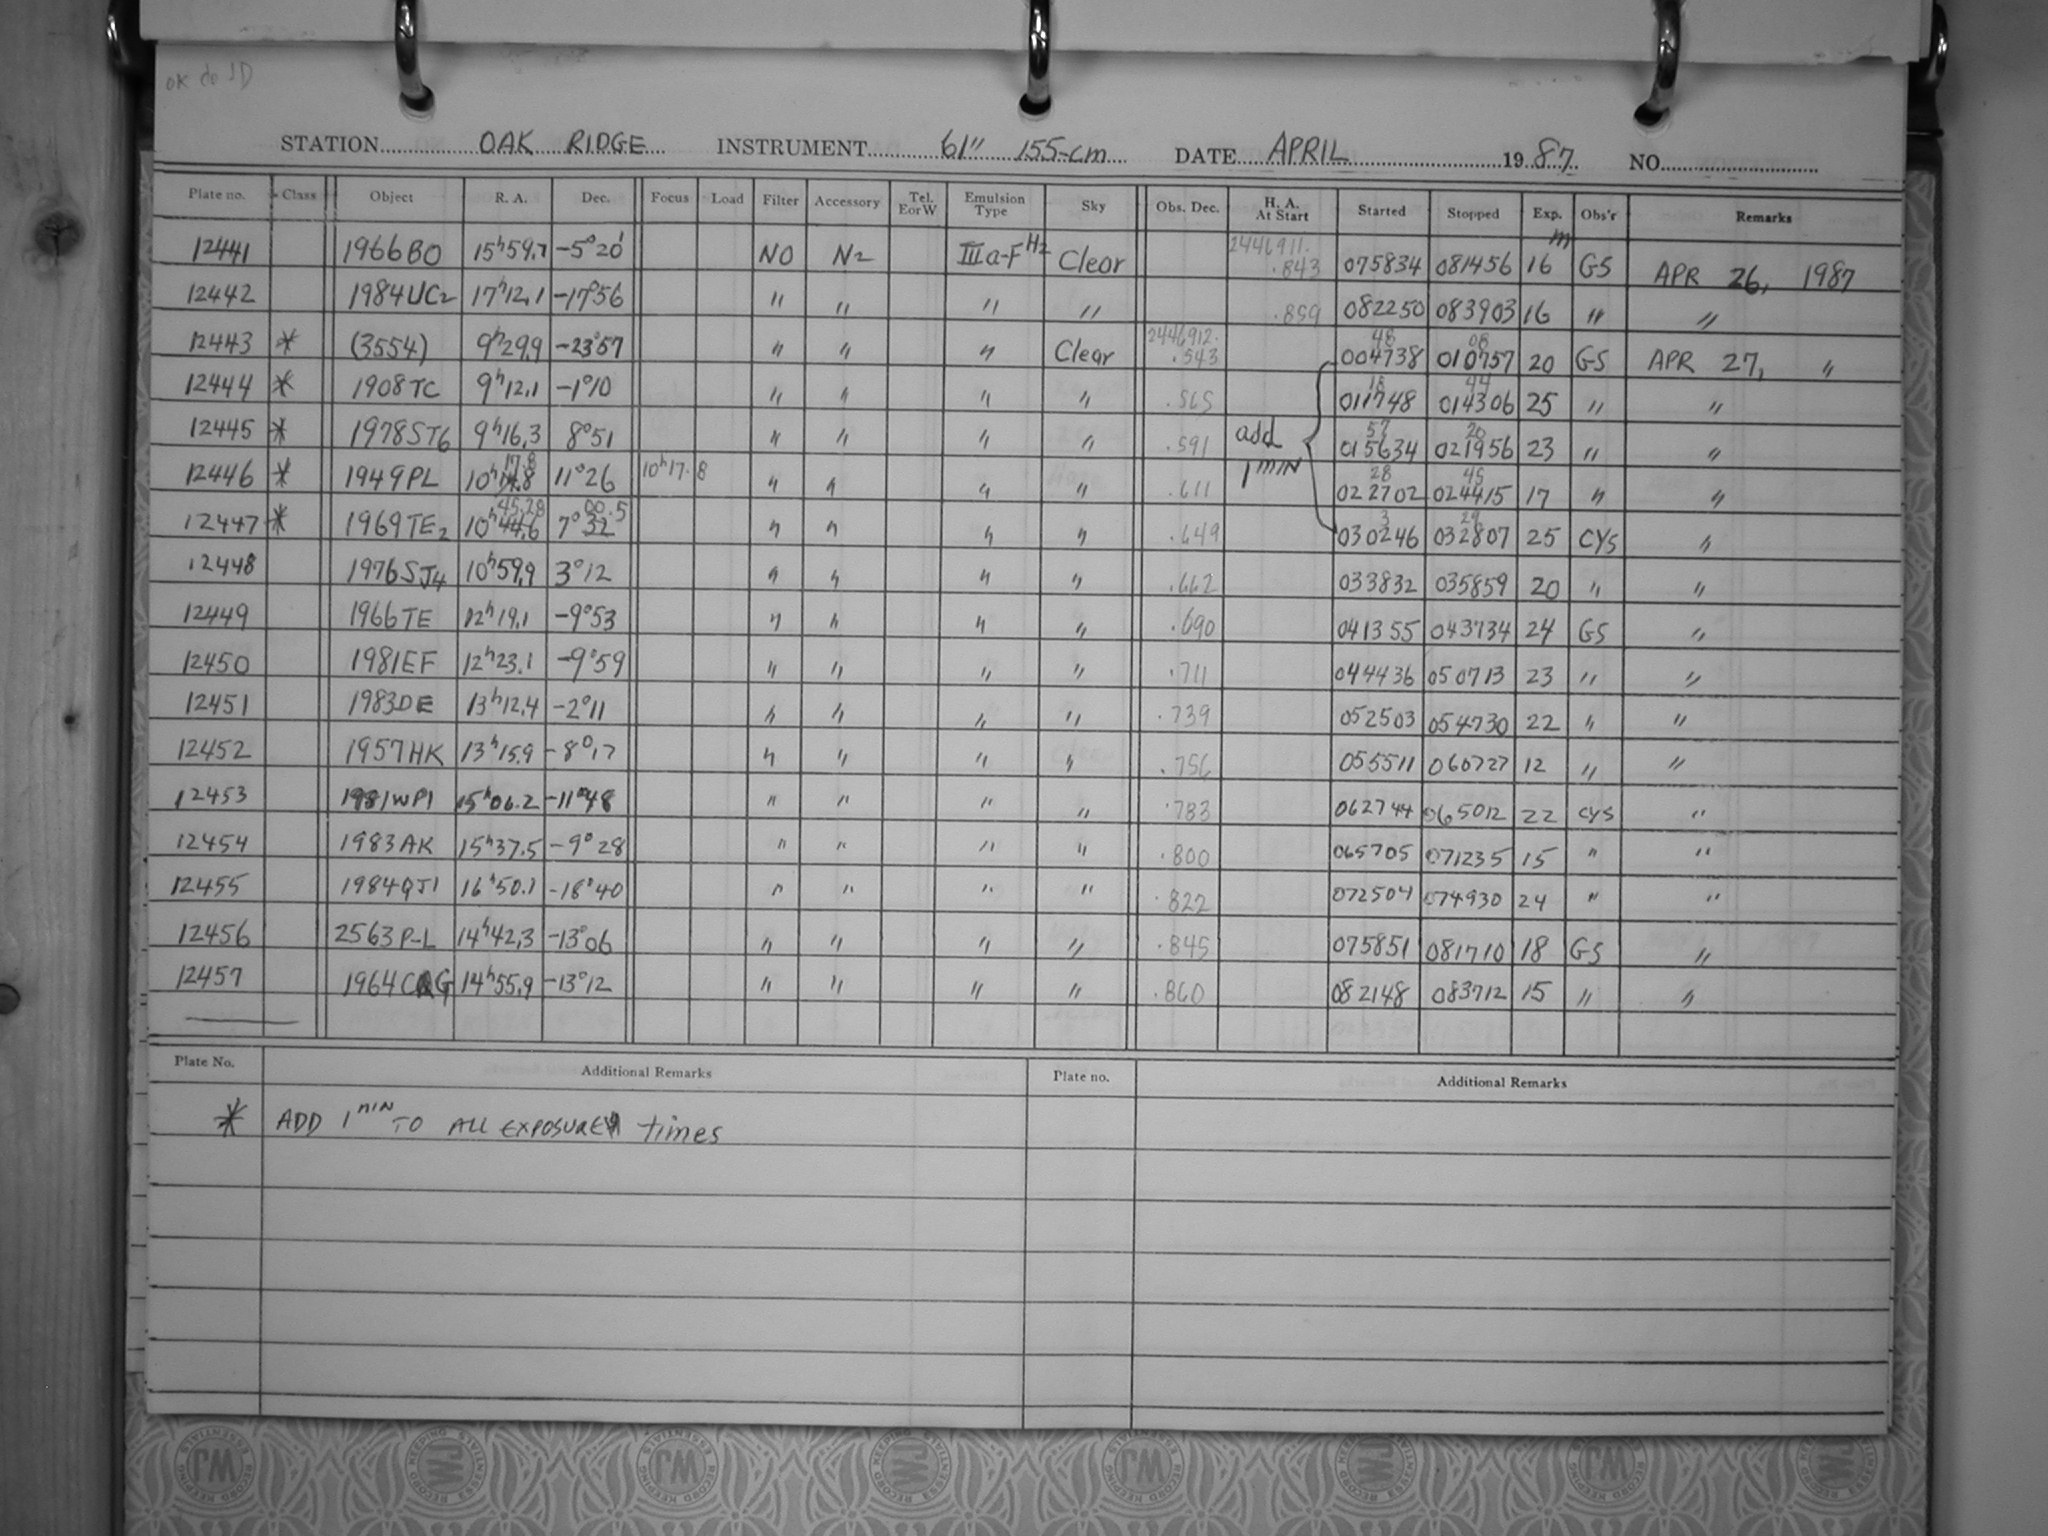 OK do JD
STATION OAK RIDGE INSTRUMENT 61" 155-cm DATE APRIL 1987 NO.
Plate no. Class Object R. A. Dec. Focus Load Filter Accessory Tel. E or W Emulsion Type Sky Obs. Dec. H. A. At Start Started Stopped Exp. Obs'r Remarks
12441 1966BO 15h59.7 -5°20' NO N2 IIIa-F H2 Clear 2446911. .843 075834 081456 16 m GS APR 26, 1987
12442 1984UC2 17h12.1 -17°56 " " " " .859 082250 083903 16 " "
12443 * (3554) 9h29.9 -23°57 " " " Clear 2446912. .543 004738 48 010757 08 20 GS APR 27, "
12444 * 1908TC 9h12.1 -1°10 " " " " .565 011748 18 014306 44 25 " "
12445 * 1978ST6 9h16.3 8°51 " " " " .591 add 015634 57 021956 20 23 " "
12446 * 1949PL 10h14.8 17.8 11°26 10h17.8 " " " " .611 1 MIN 022702 28 024415 45 17 " "
12447 * 1969TE2 10h44.6 45.28 7°32 00.5 " " " " .649 030246 3 032807 29 25 CYS "
12448 1976SJ4 10h59.9 3°12 " " " " .662 033832 035859 20 " "
12449 1966TE 12h19.1 -9°53 " " " " .690 041355 043734 24 GS "
12450 1981EF 12h23.1 -9°59 " " " " .711 044436 050713 23 " "
12451 1983DE 13h12.4 -2°11 " " " " .739 052503 054730 22 " "
12452 1957HK 13h15.9 -8°17 " " " " .756 055511 060727 12 " "
12453 1981WP1 15h06.2 -11°48 " " " " .783 062744 065012 22 CYS "
12454 1983AK 15h37.5 -9°28 " " " " .800 065705 071235 15 " "
12455 1984QJ1 16h50.1 -18°40 " " " " .822 072504 074930 24 " "
12456 2563P-L 14h42.3 -13°06 " " " " .845 075851 081710 18 GS "
12457 1964CG 14h55.9 -13°12 " " " " .860 082148 083712 15 " "
Plate No. Additional Remarks Plate no. Additional Remarks
* ADD 1 MIN TO ALL EXPOSURE times
JM RECORD KEEPING ESSENTIALS